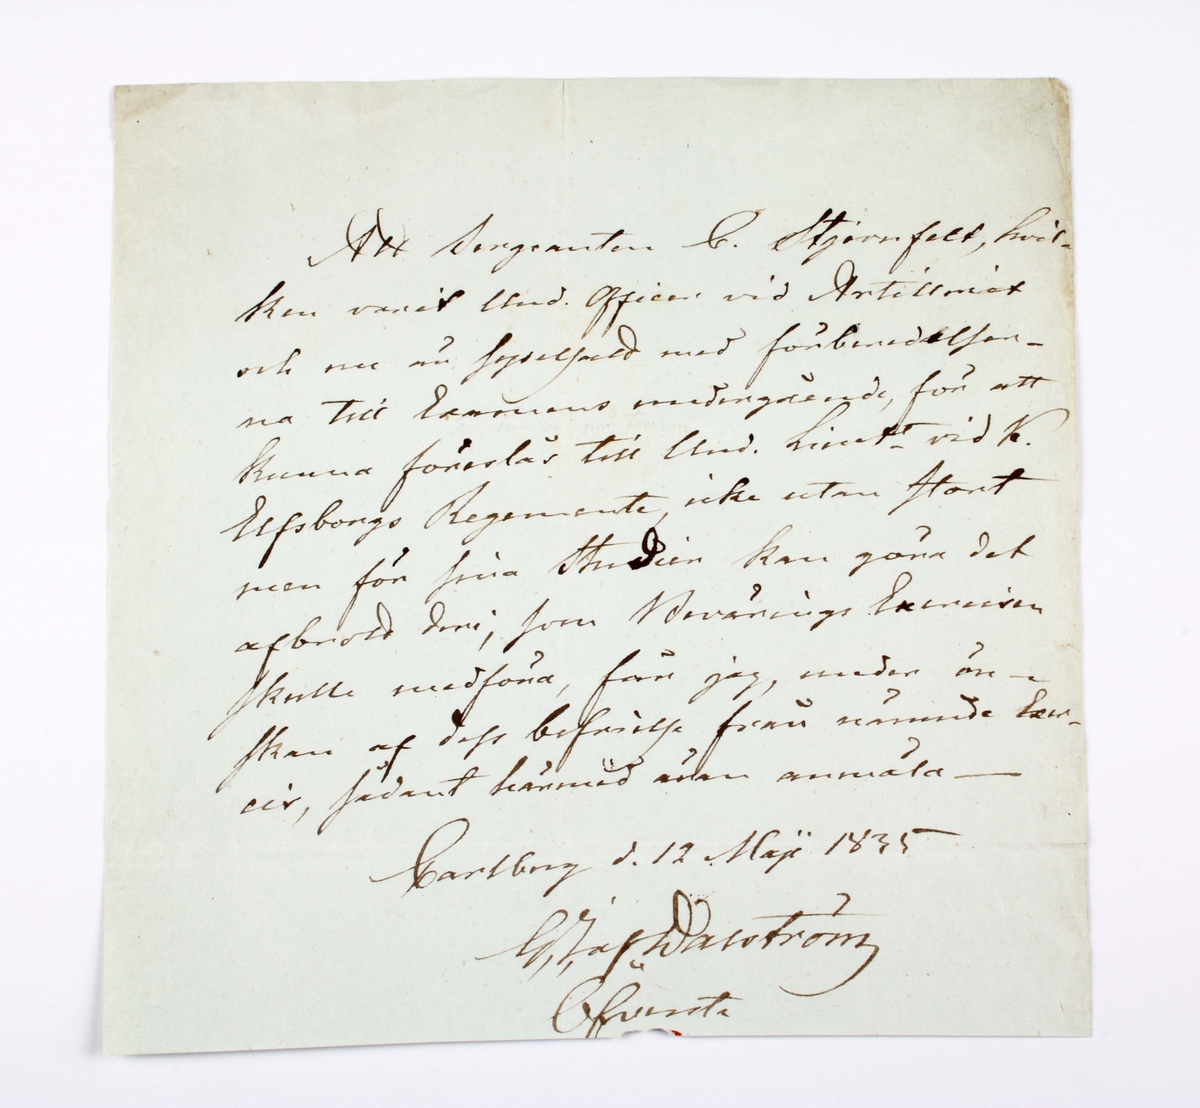 Att Sergeanten C. Stjernfelt, hvil-
ken varit Und. Officer vid Artilleriet
och nu är sysselsatt med förberedelser-
na till Examens undergående, för att
kunna föreslås till Und. Lieut:t vid K.
Elfsborgs Regemente, icke utan stort
men för sina Studier kan göra det
afbrott deri, som Bevärings Exercisen
skulle medföra, får jag, under ön-
skan af dess befrielse från nämnde Exer-
cis, sådant härmed äran anmäla —
Carlberg d. 12 Maji 1835
af Dalström
Öfverste